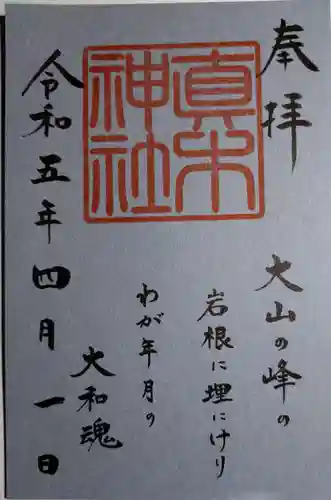 奉拝
真木神社
大山の峰の
岩根に埋にけり
わが年月の
大和魂
令和五年四月一日